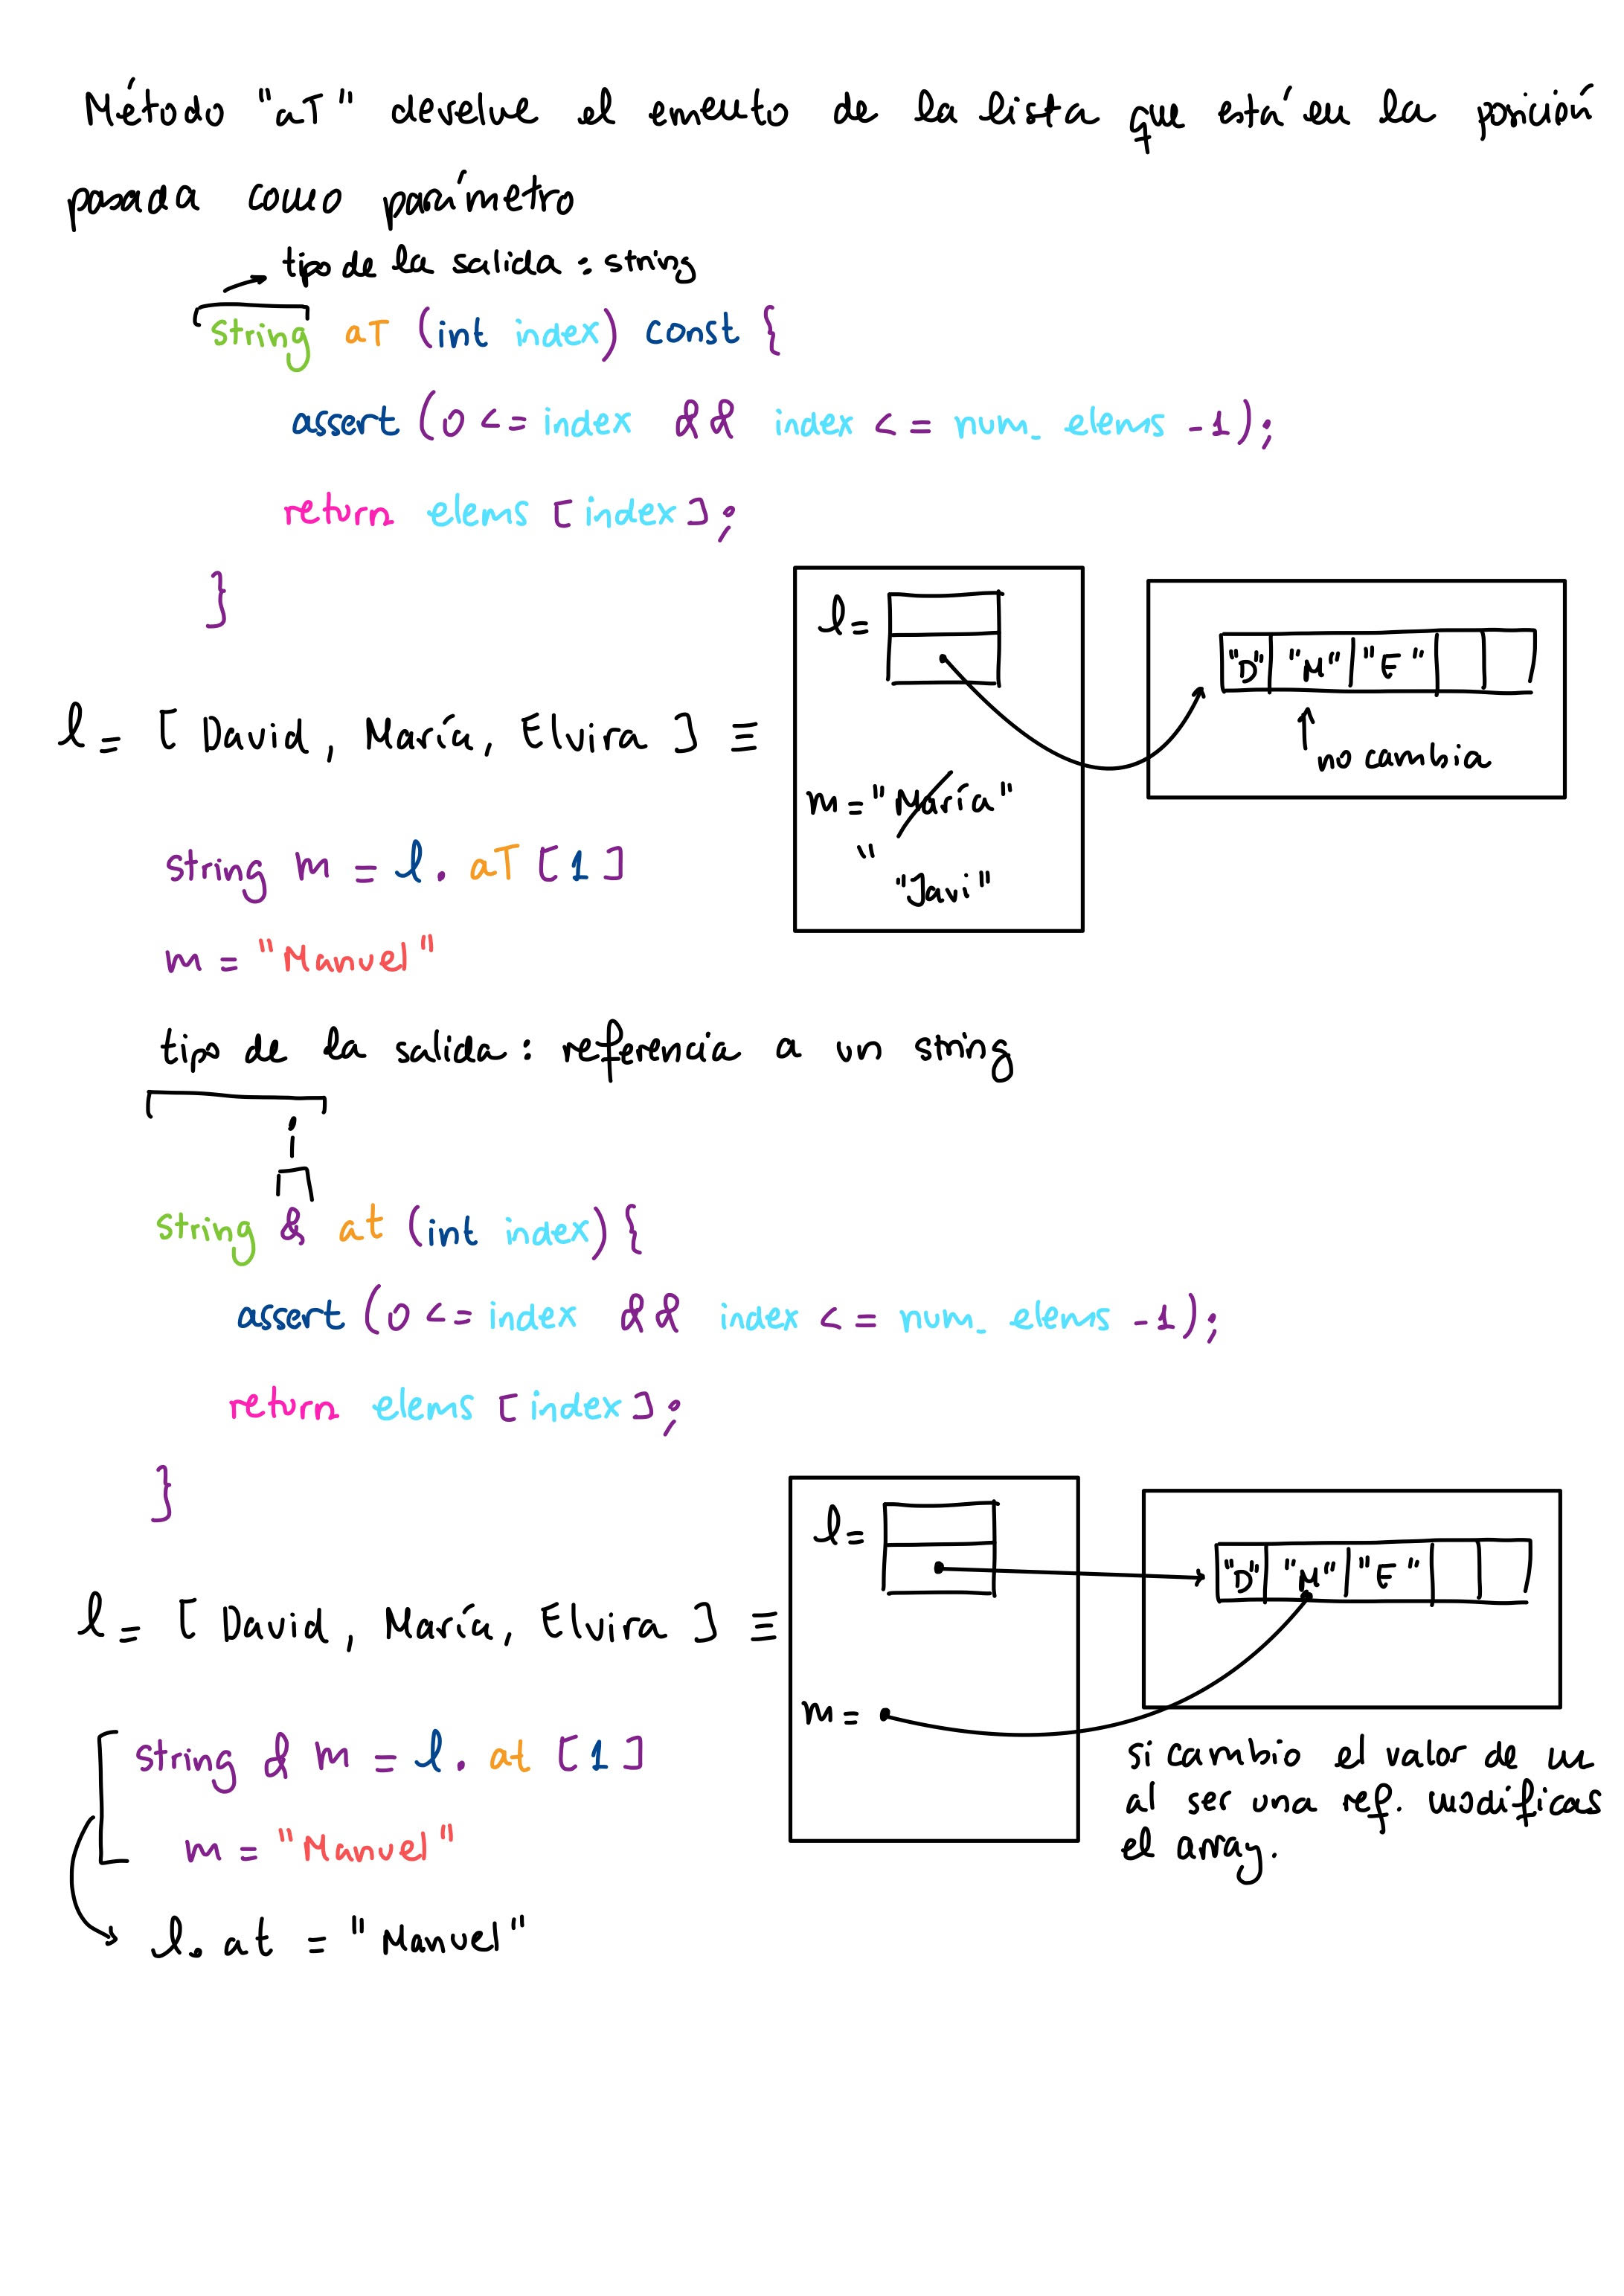 Método "aT" devuelve el emento de la lista que está en la posición
pasada como parámetro
tipo de la salida : string
string aT (int index) const {
assert (0 <= index && index <= num_elems -1);
return elems [index];
}
l =
"D" "M" "E"
no cambia
l = [ David, María, Elvira ] ≡
m = "María"
"
"Javi"
string m = l. aT [1]
m = "Manuel"
tipo de la salida : referencia a un string
string & at (int index) {
assert (0 <= index && index <= num_elems -1);
return elems [index];
}
l =
"D" "M" "E"
l = [ David, María, Elvira ] ≡
m =
string & m = l. at [1]
m = "Manuel"
si cambio el valor de m
al ser una ref. modificas
el array.
l. at = "Manuel"